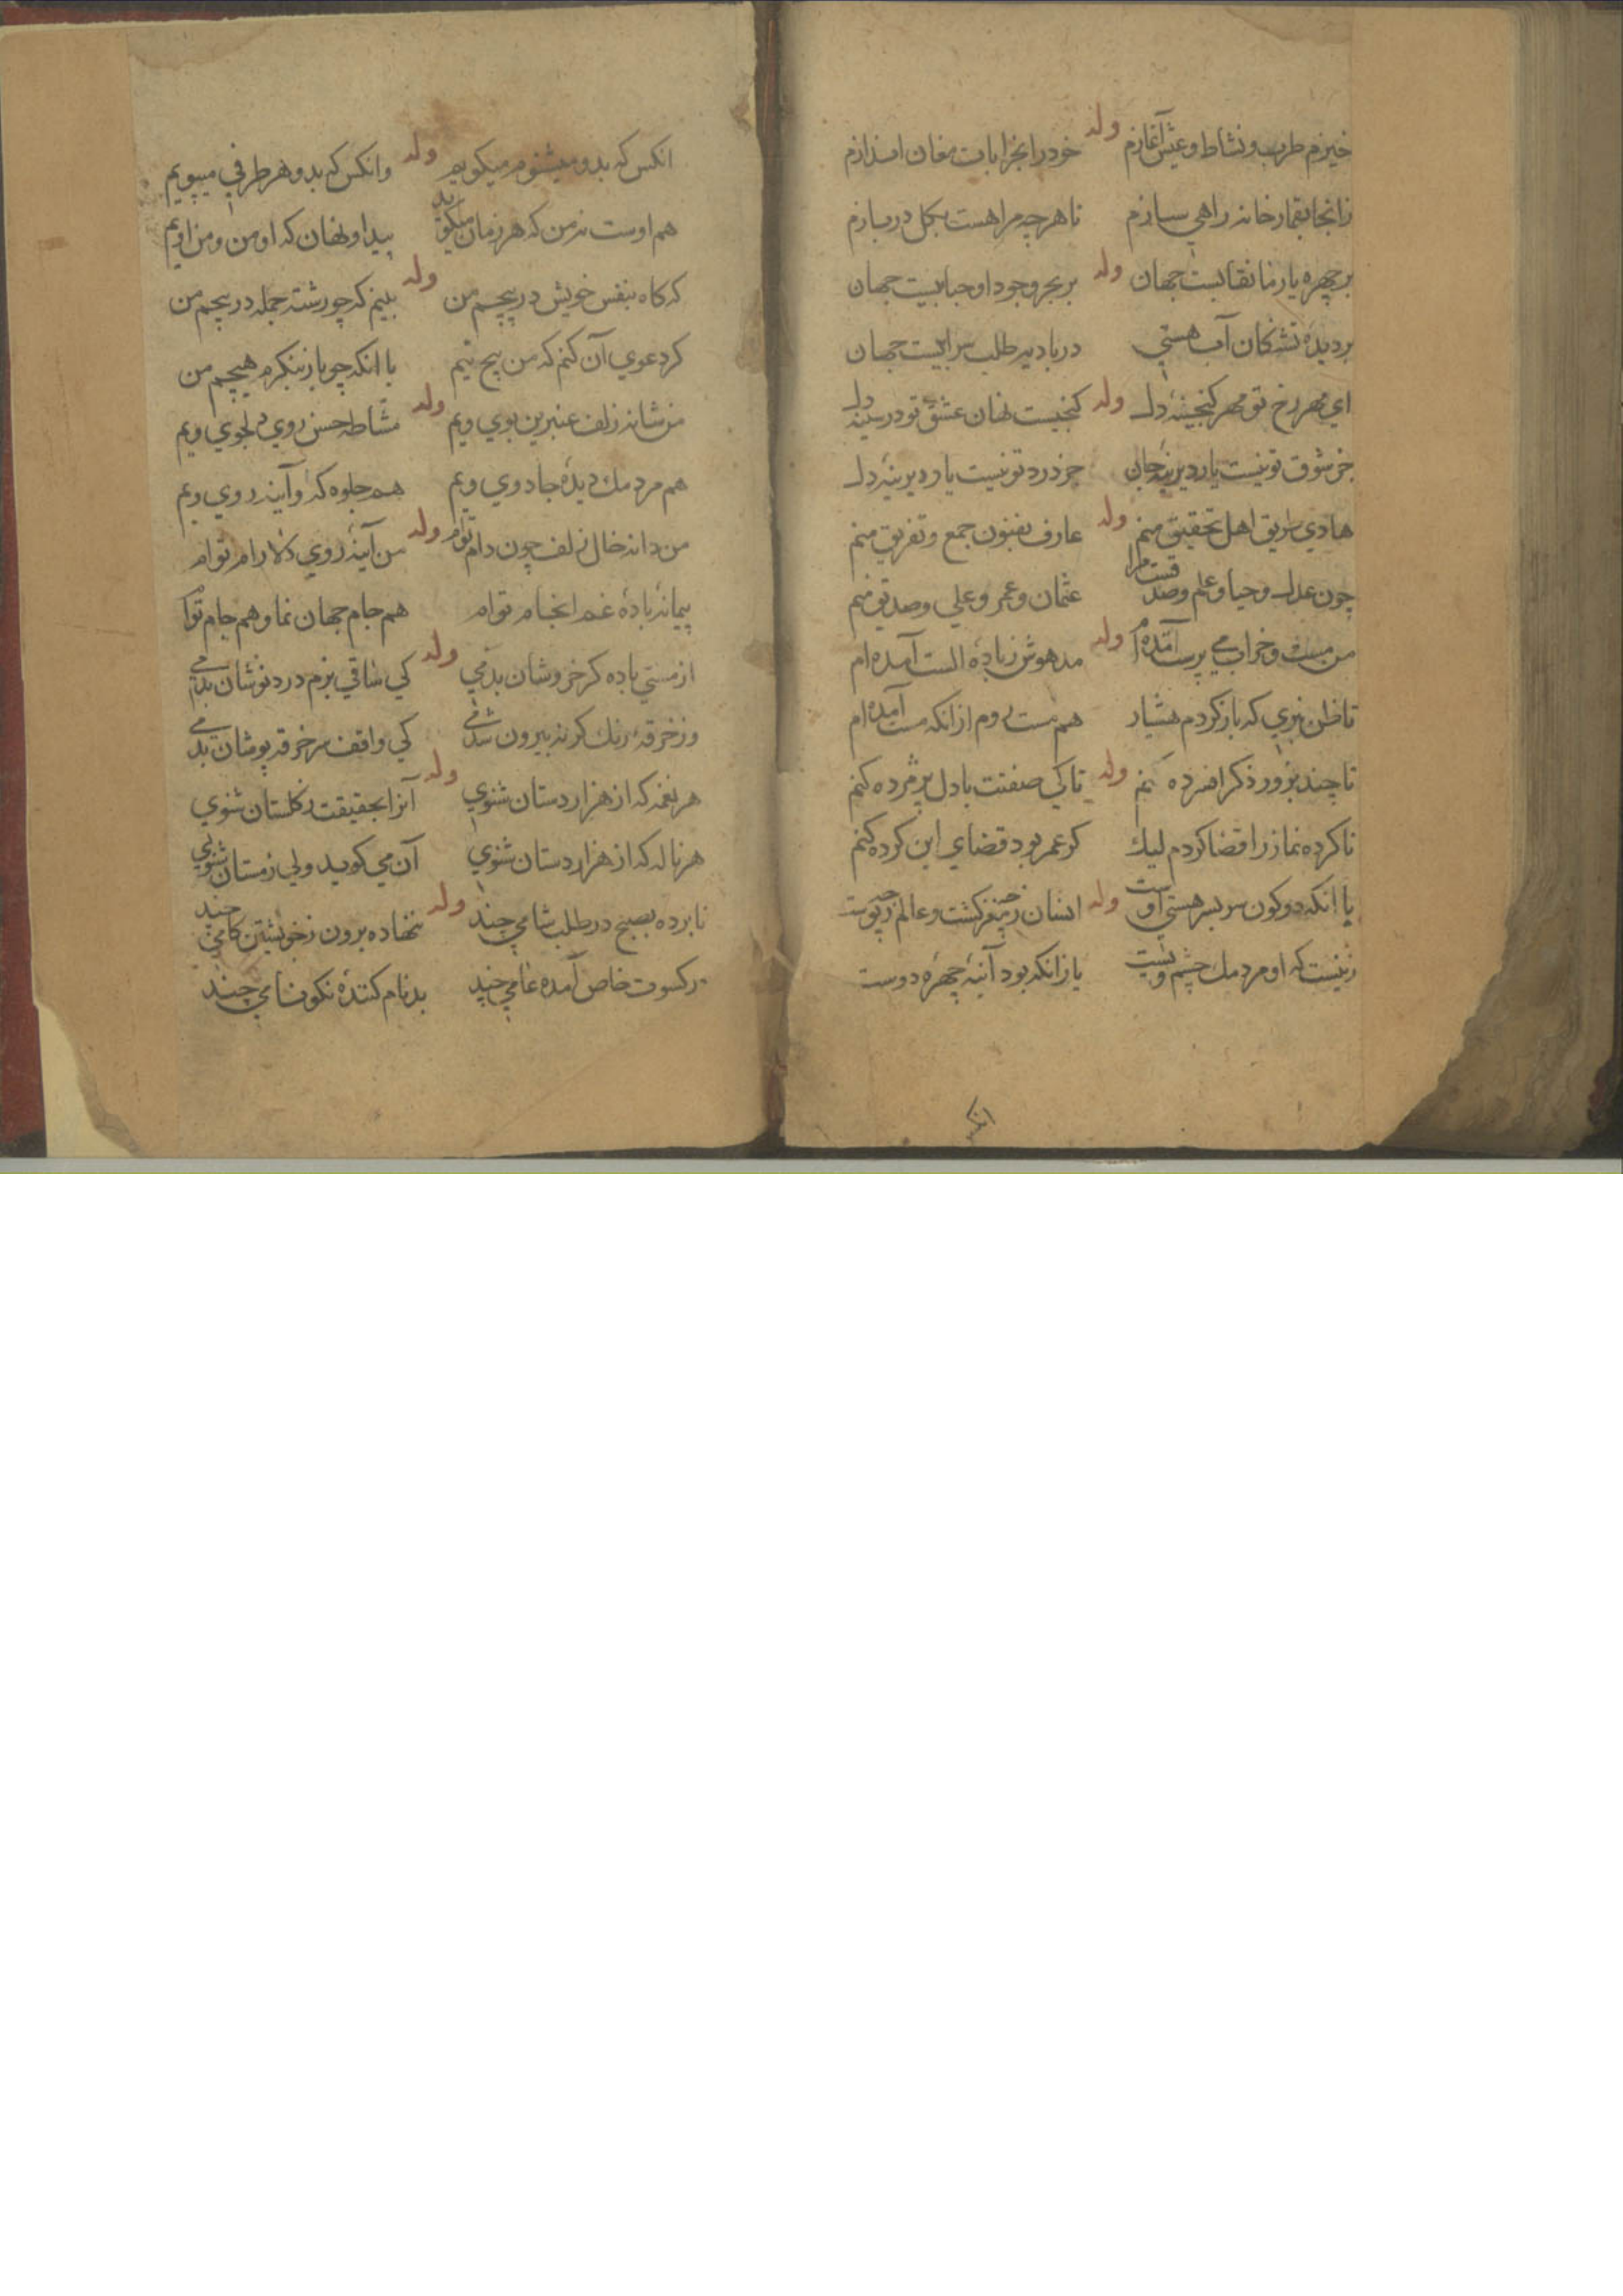 خیزم طرب و نشاط و عیش آغازم وله خود را بخرابات مغان اندازم
زانجا بقمارخانه راهی سازم تا هرچه مرا هست بکل دربازم
بر چهره یار ما نقابیست جهان وله بر بحر وجود او حبابیست جهان
بر دیده تشنکان آب هستی در بادیه طلب سرابیست جهان
ای مهر رخ تو مهر کنجینه دل وله کنجیست نهان عشق تو در سینه دل
جز شوق تو نیست یار دیرینه جان جز درد تو نیست یار دیرینه دل
هادی طریق اهل تحقیق منم وله عارف بفنون جمع و تفریق منم
چون عدل و حیا و علم و صدقست مرا عثمان و عمر و علی و صدیق منم
من مست و خراب می پرست آمده ام وله مدهوش ز باده الست آمده ام
تا ظن نبری که باز کردم هشیار هم مست روم از انکه مست آمده ام
تا چند بزور ذکر افسرده کنم وله تا کی صفتت با دل پژمرده کنم
ناکرده نماز را قضا کردم لیك کر عمر بود قضای این کرده کنم
با انکه دو کون سر بسر هستی اوست وله انسان ز چه مغز کشت و عالم ز چه پوست
زینست که او مردمك چشم ویست یا زانکه بود آینه چهره دوست
انکس
انکس که بدو میشنوم میکویم وله وانکس که بدو هر طرفی میپویم
هم اوست نه من که هر زمان میکوید پیدا و نهان که او من و من اویم
که کاه بنفس خویش در پیچم من وله بینم که چو رشته جمله در پیچم من
کر دعوی آن کنم که من هیچ نیم با انکه چو باز بنکرم هیچم من
من شانه زلف عنبرین بوی ویم وله مشاطه حسن روی دلجوی ویم
هم مردمك دیده جادوی ویم هم جلوه که و آینه روی ویم
من دانه خال زلف چون دام توام وله من آینه روی دلارام توام
پیمانه باده غم انجام توام هم جام جهان نما و هم جام توام
از مستی باده کر خروشان بدمی وله کی ساقی بزم درد نوشان بدمی
وز خرقه رنك کر نه بیرون شدمی کی واقف سر خرقه پوشان بدمی
هر نغمه که از هزار دستان شنوی وله آنرا بحقیقت ز کلستان شنوی
هر ناله که از هزار دستان شنوی آن می کوید ولی ز مستان شنوی
نابرده بصبح در طلب شامی چند وله ننهاده برون ز خویشتن کامی چند
در کسوت خاص آمده عامی چند بدنام کننده نکونامی چند